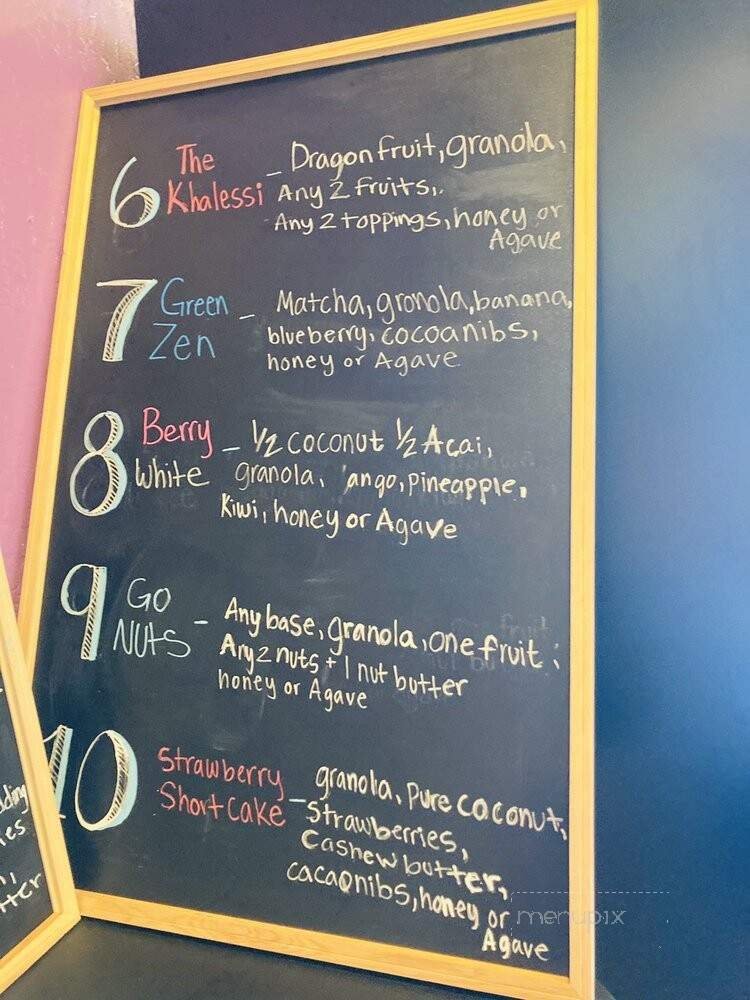 6 The Khalessi - Dragon fruit, granola,
Any 2 fruits,
Any 2 toppings, honey or
Agave
7 Green Zen - Matcha, gronola, banana,
blueberry, cocoanibs,
honey or Agave
8 Berry White - 1/2 coconut 1/2 Acai,
granola, ango, pineapple,
Kiwi, honey or Agave
9 Go NUtS - Any base, granola, one fruit;
Any 2 nuts + 1 nut butter
honey or Agave
10 Strawberry Shortcake - granola, Pure coconut,
Strawberries,
Cashew butter,
cacaonibs, honey or
Agave
menupix